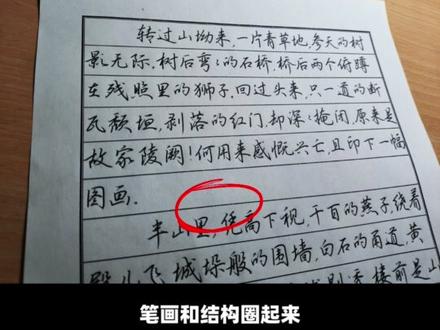 转过山坳来,一片青草地,参天的树
影无际.树后弯〻的石桥,桥后两个俯蹲
在残照里的狮子.回过头来,只一道的断
瓦颓垣,剥落的红门,却深〻掩闭.原来是
故家陵阙!何用来感慨兴亡,且印下一幅
图画.
半山里,凭高下视,千百的燕子,绕着
殿儿飞.城垛般的围墙,白石的甬道,黄
楼前是山
笔画和结构圈起来